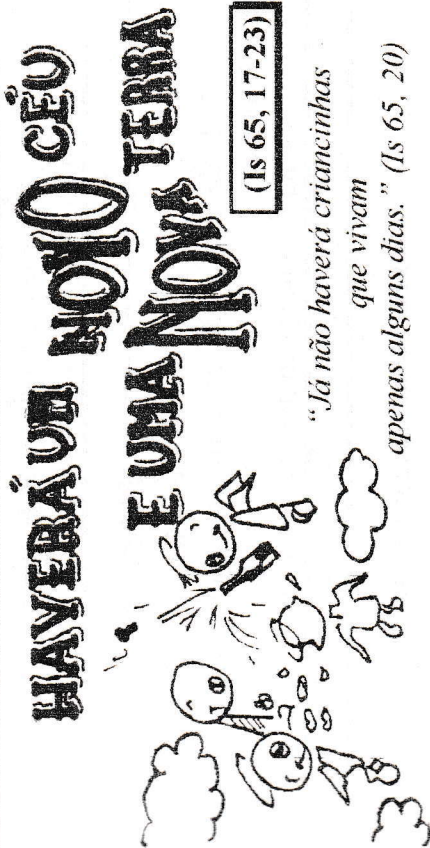 HAVERÁ UM NOVO CÉU
E UMA NOVA TERRA
(Is 65, 17-23)
“Já não haverá criancinhas
que vivam
apenas alguns dias.” (Is 65, 20)